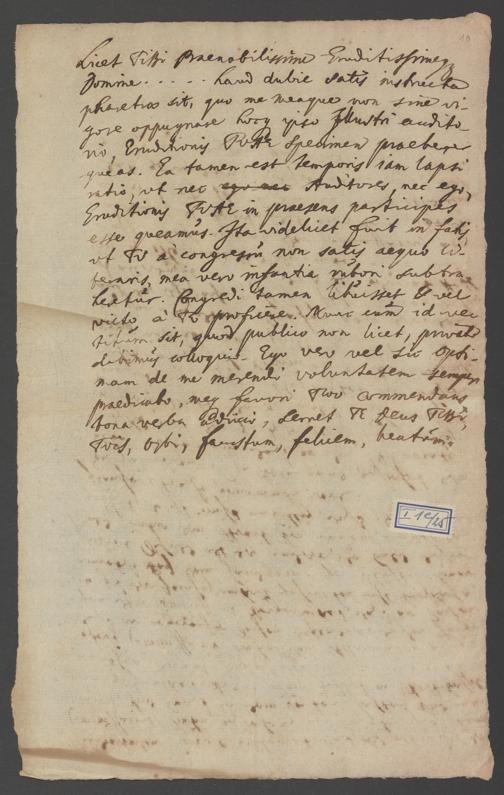 10
Licet Tibi Praenobilissime Eruditissimeq
Domine . . . . . haud dubie satis instructa
pharetra sit, quo me meaque non sine vi-
gore oppugnare hocq ipso Illustri audito-
rio Eruditionis TUAE specimen praebere
queas. Ea tamen est temporis iam lapsi
ratio, ut nec Auditores, nec ego,
Eruditionis TUAE in praesens participes
esse queamus. Ita videlicet fuit in fatis
ut TU a congressu non satis aequo li-
beraris, mea vero infantia rubori subtra-
heretur. Congredi tamen libuisset & vel
victo à Te proficere. Nunc cum id ve-
titum sit, quod publico non licet, privato
dabimus colloquio. Ego vero vel sic opti-
mam de me merendi voluntatem semper
praedicabo, meq favori Tuo commendans
bona verba adiicio, servet Te Deus Tibi,
Tuis, Orbi, faustum, felicem, beatum.
I 1c/25